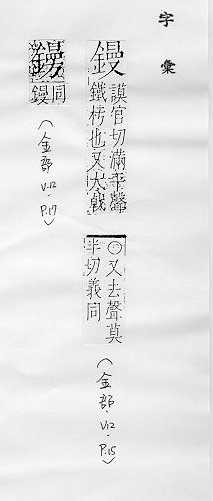 字彙
鏝
謨官切滿平聲
鐵杇也又大戟
〇又去聲莫
半切義同
(金部.V12.P.15)
鏝
同鏝
(金部V.12.P.17)